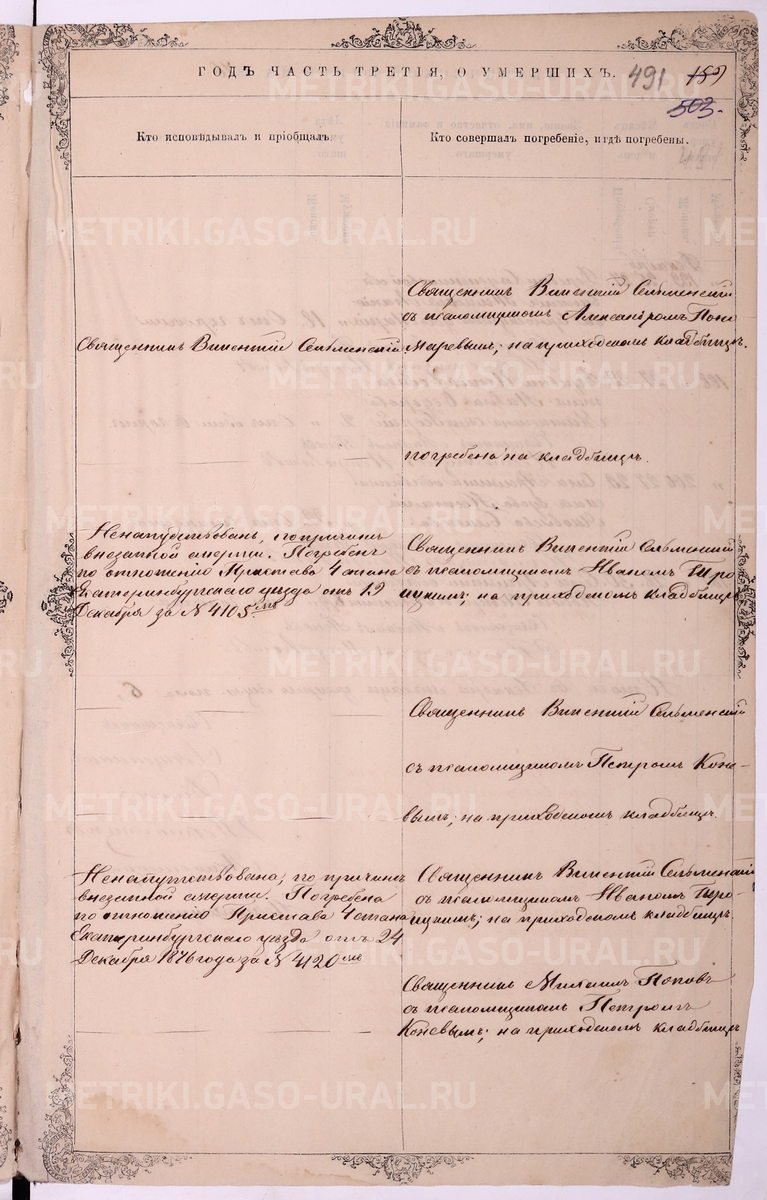 ГОДЪ ЧАСТЬ ТРЕТІЯ, О УМЕРШИХЪ. 491
503.
Кто исповѣдывалъ и пріобщалъ
Кто совершалъ погребеніе, и гдѣ погребены.
Священникъ Викентій Сельменскій
Священникъ Викентій Сельменскій
съ псаломщикомъ Александромъ Поно
маревымъ; на приходскомъ кладбищѣ.
погребена на кладбищѣ.
Ненапутствованъ, по причинѣ
внезапной смерти. Погребенъ
по отношенію Пристава 4 стана
Екатеринбургскаго уѣзда отъ 19
Декабря за № 4105
Священникъ Викентій Сельменскій
съ псаломщикомъ Иваномъ Тро
ицкимъ; на приходскомъ кладбищѣ
Священникъ Викентій Сельменскій
съ псаломщикомъ Петромъ Коне-
вымъ; на приходскомъ кладбищѣ.
Ненапутствована, по причинѣ
внезапной смерти. Погребена
по отношенію Пристава 4 стана
Екатеринбургскаго уѣзда отъ 24
Декабря 1876 года за № 4120
Священникъ Викентій Сельменскій
съ псаломщикомъ Иваномъ Тро-
ицкимъ; на приходскомъ кладбищѣ.
Священникъ Михаилъ Поповъ
съ псаломщикомъ Петромъ
Коневымъ; на приходскомъ кладбищѣ
METRIKI.GASO-URAL.RU